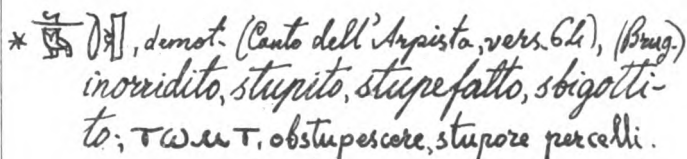 *, demot. (Canto dell'Arpista, vers. 64), (Brug.)
inorridito, stupito, stupefatto, sbigotti-
to; ⲧⲱⲙⲧ, obstupescere, stupore percelli.